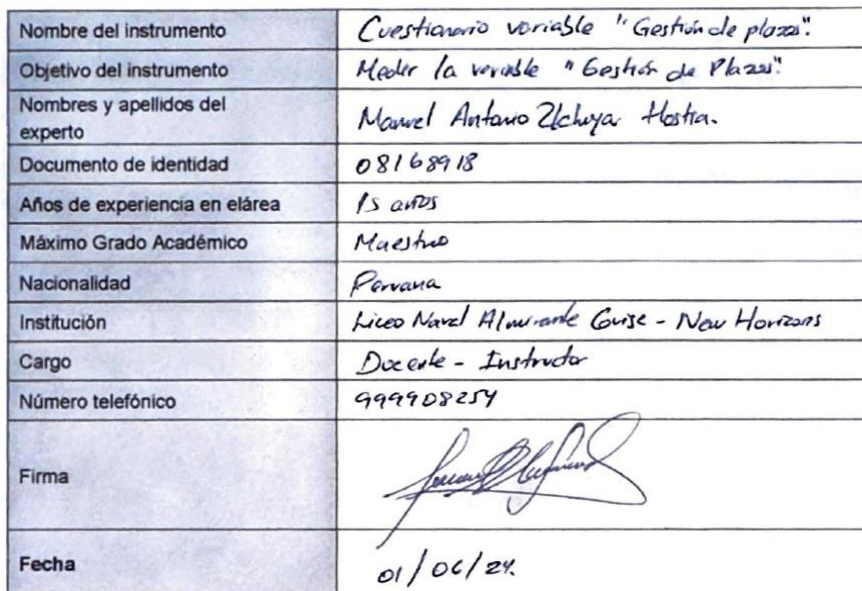 Nombre del instrumento
Cuestionario variable "Gestión de plazas".
Objetivo del instrumento
Medir la variable "Gestión de Plazas".
Nombres y apellidos del
experto
Manuel Antonio
Documento de identidad
08168918
Años de experiencia en elárea
15 años
Máximo Grado Académico
Maestro
Nacionalidad
Peruana
Institución
Liceo Naval Almirante Guise - New Horizons
Cargo
Docente - Instructor
Número telefónico
999908254
Firma
Fecha
01/06/24.